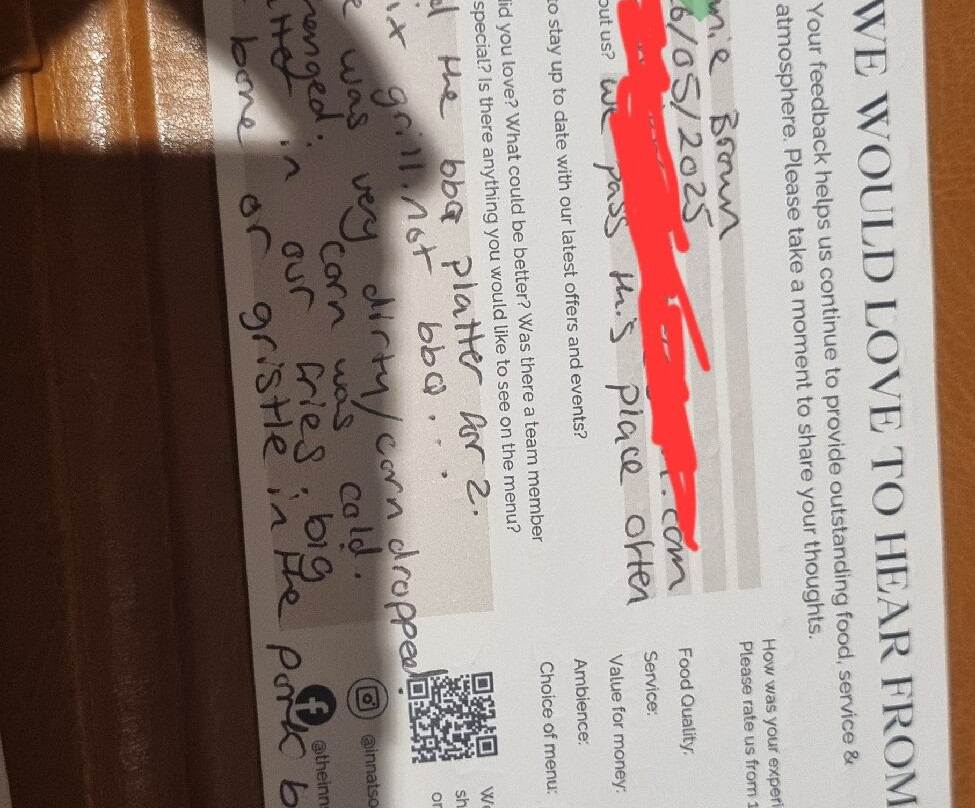 WE WOULD LOVE TO HEAR FROM
Your feedback helps us continue to provide outstanding food, service &
atmosphere. Please take a moment to share your thoughts.
Brown
/05/2025
.com
out us? we pass this place often
to stay up to date with our latest offers and events?
did you love? What could be better? Was there a team member
special? Is there anything you would like to see on the menu?
the bbq platter for 2.
grill. not bbq...
was very dirty/corn dropped
corn was cold.
in our fries. big
bone or gristle in the pork b
How was your experi
Please rate us from 1
Food Quality:
Service:
Value for money:
Ambience:
Choice of menu:
We
sh
or
@innatso
@theinn